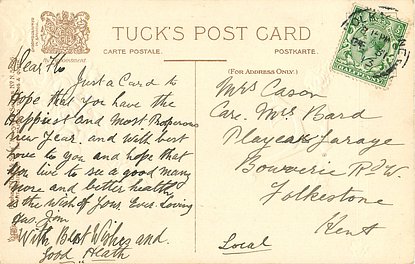 TUCK'S POST CARD
CARTE POSTALE.
POSTKARTE.
(FOR ADDRESS ONLY.)
Dear Flo
Just a Card to
Hope that you have the
Happiest and Most Prosperous
New Year. and with best
love to you and hope that
you live to see a good many
more and better health
is the wish of Your Ever Loving
Gus. Jim
With Best Wishes and
Good Health
Mrs Cason
Care. Mrs Bard
Garage
Bouverie Rd W.
Folkestone
Kent
Local